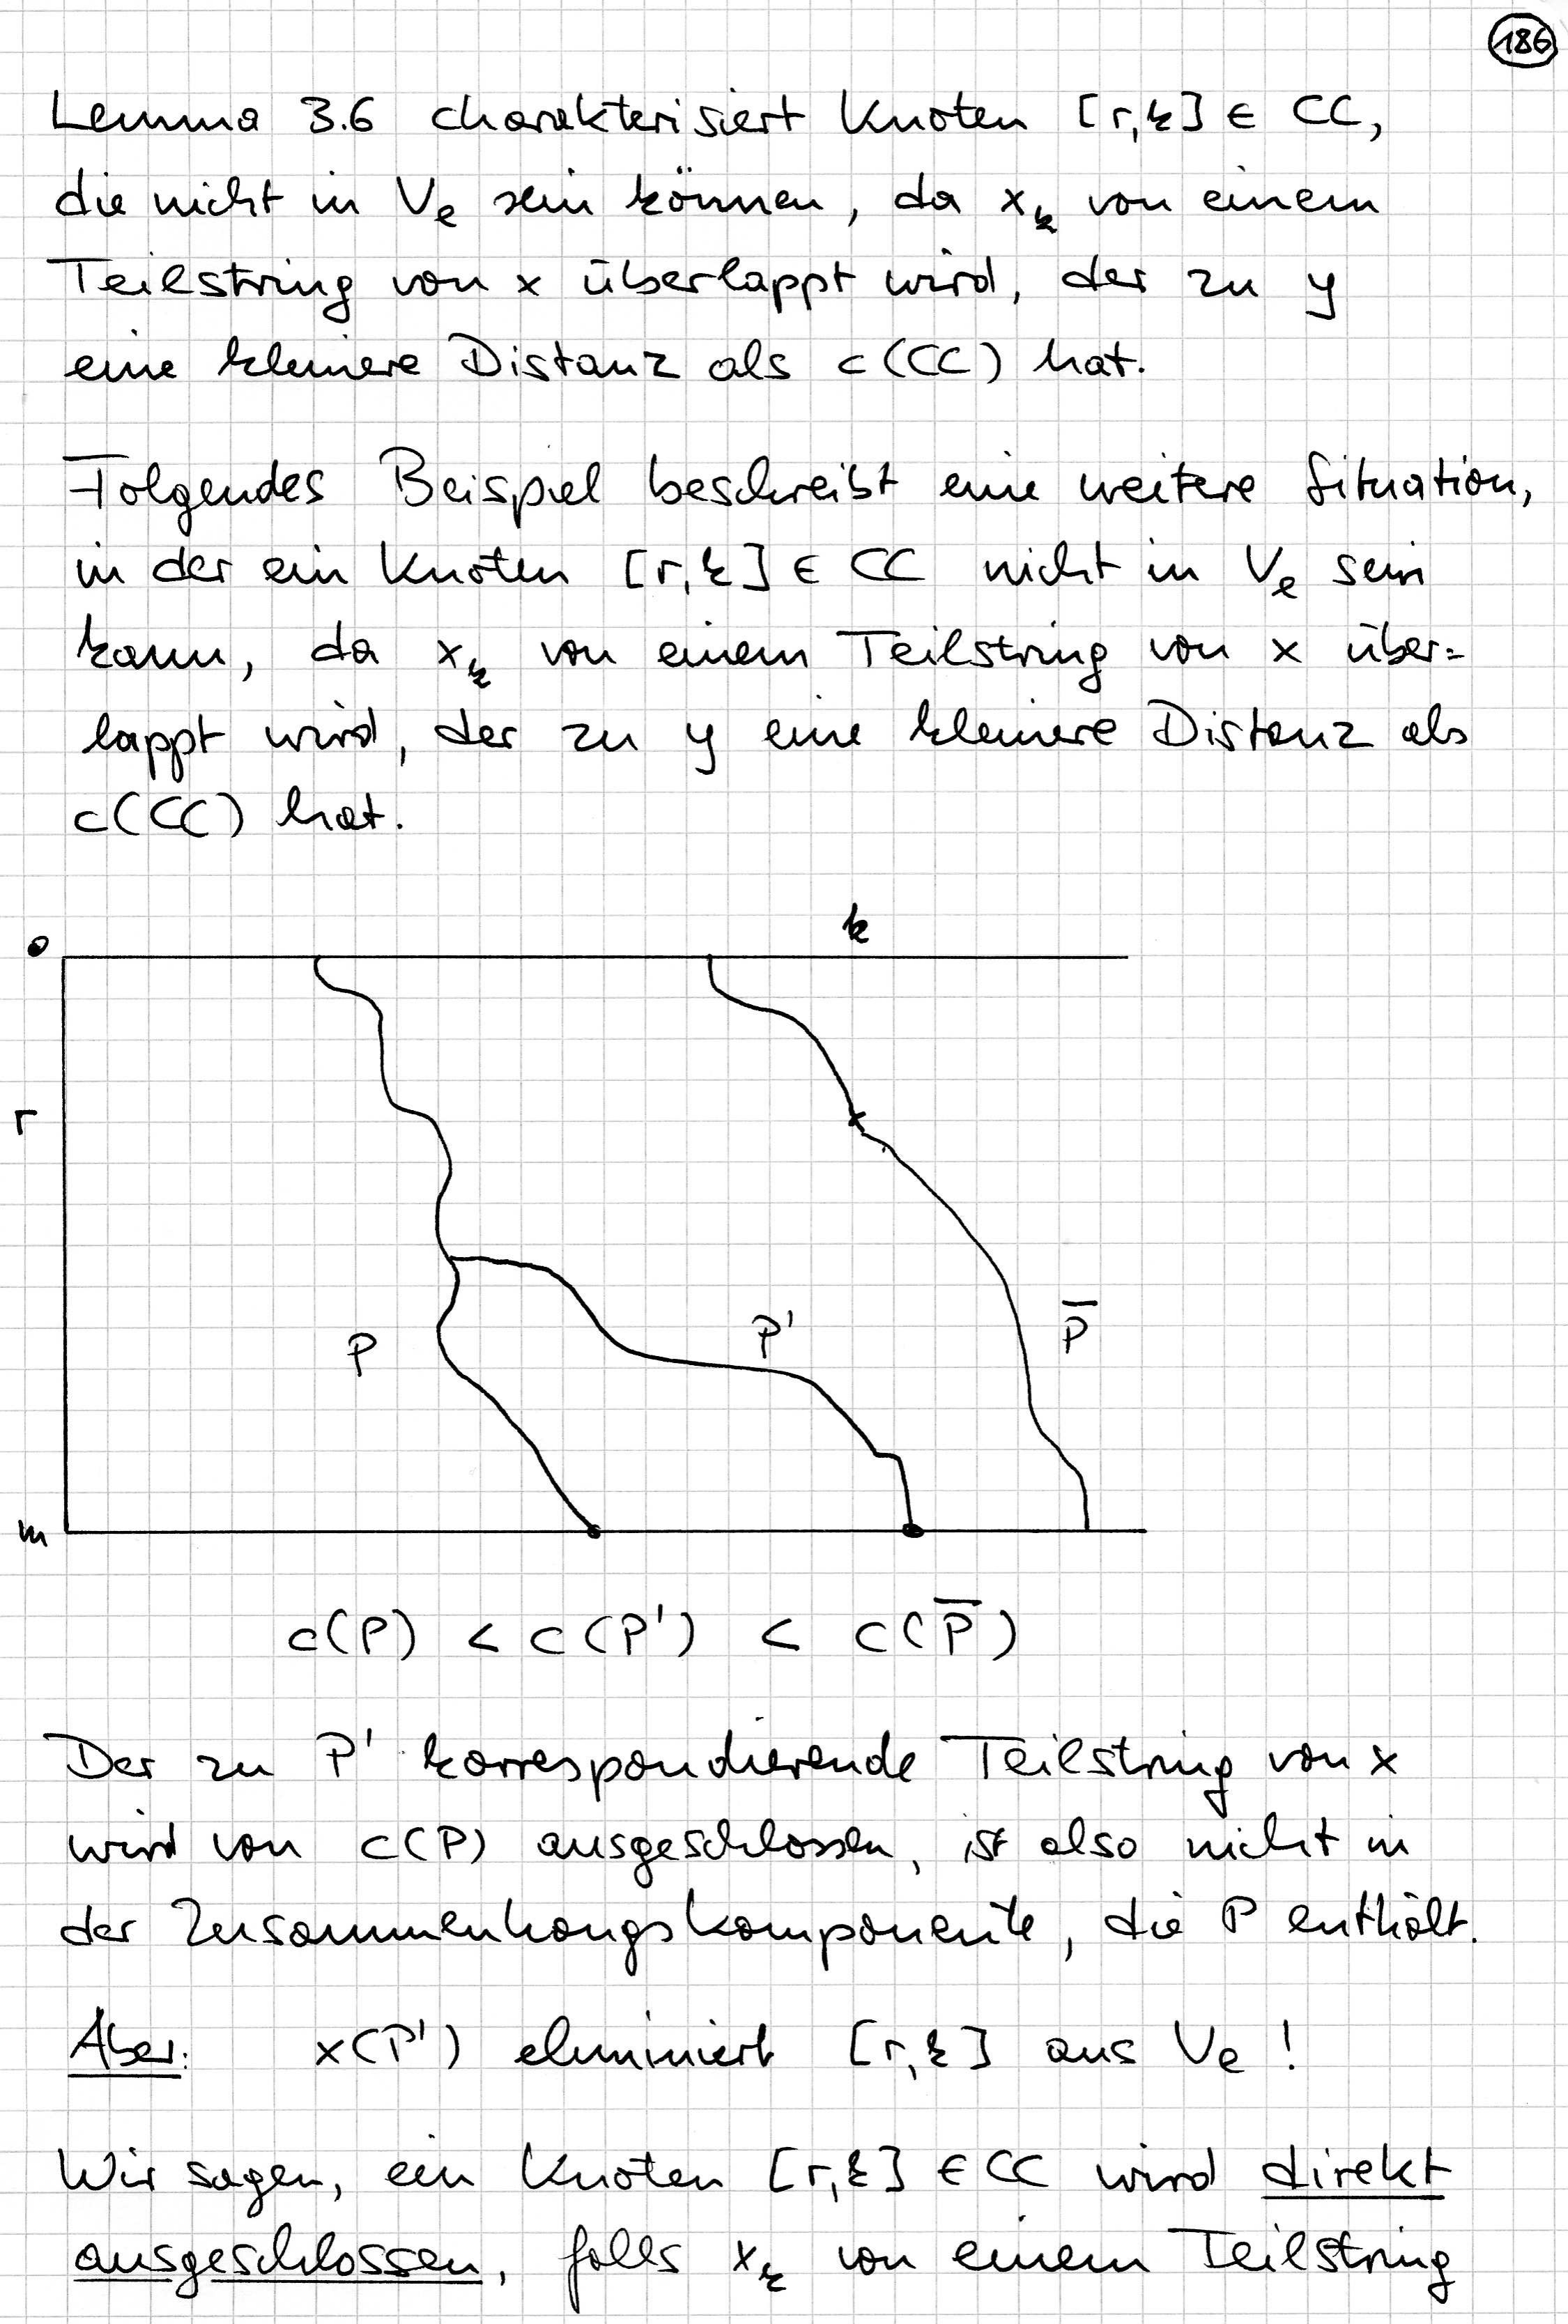 186
Lemma 3.6 charakterisiert Knoten [r,k] ∈ CC,
die nicht in Vₑ sein können, da xₖ von einem
Teilstring von x überlappt wird, der zu y
eine kleinere Distanz als c(CC) hat.
Folgendes Beispiel beschreibt eine weitere Situation,
in der ein Knoten [r,k] ∈ CC nicht in Vₑ sein
kann, da xₖ von einem Teilstring von x über=
lappt wird, der zu y eine kleinere Distanz als
c(CC) hat.
k
0
r
P
P'
P̄
m
c(P) < c(P') < c(P̄)
Der zu P' korrespondierende Teilstring von x
wird von c(P) ausgeschlossen, ist also nicht in
der Zusammenhangskomponente, die P enthält.
Aber: x(P') eliminiert [r,k] aus Vₑ!
Wir sagen, ein Knoten [r,k] ∈ CC wird direkt
ausgeschlossen, falls xₖ von einem Teilstring